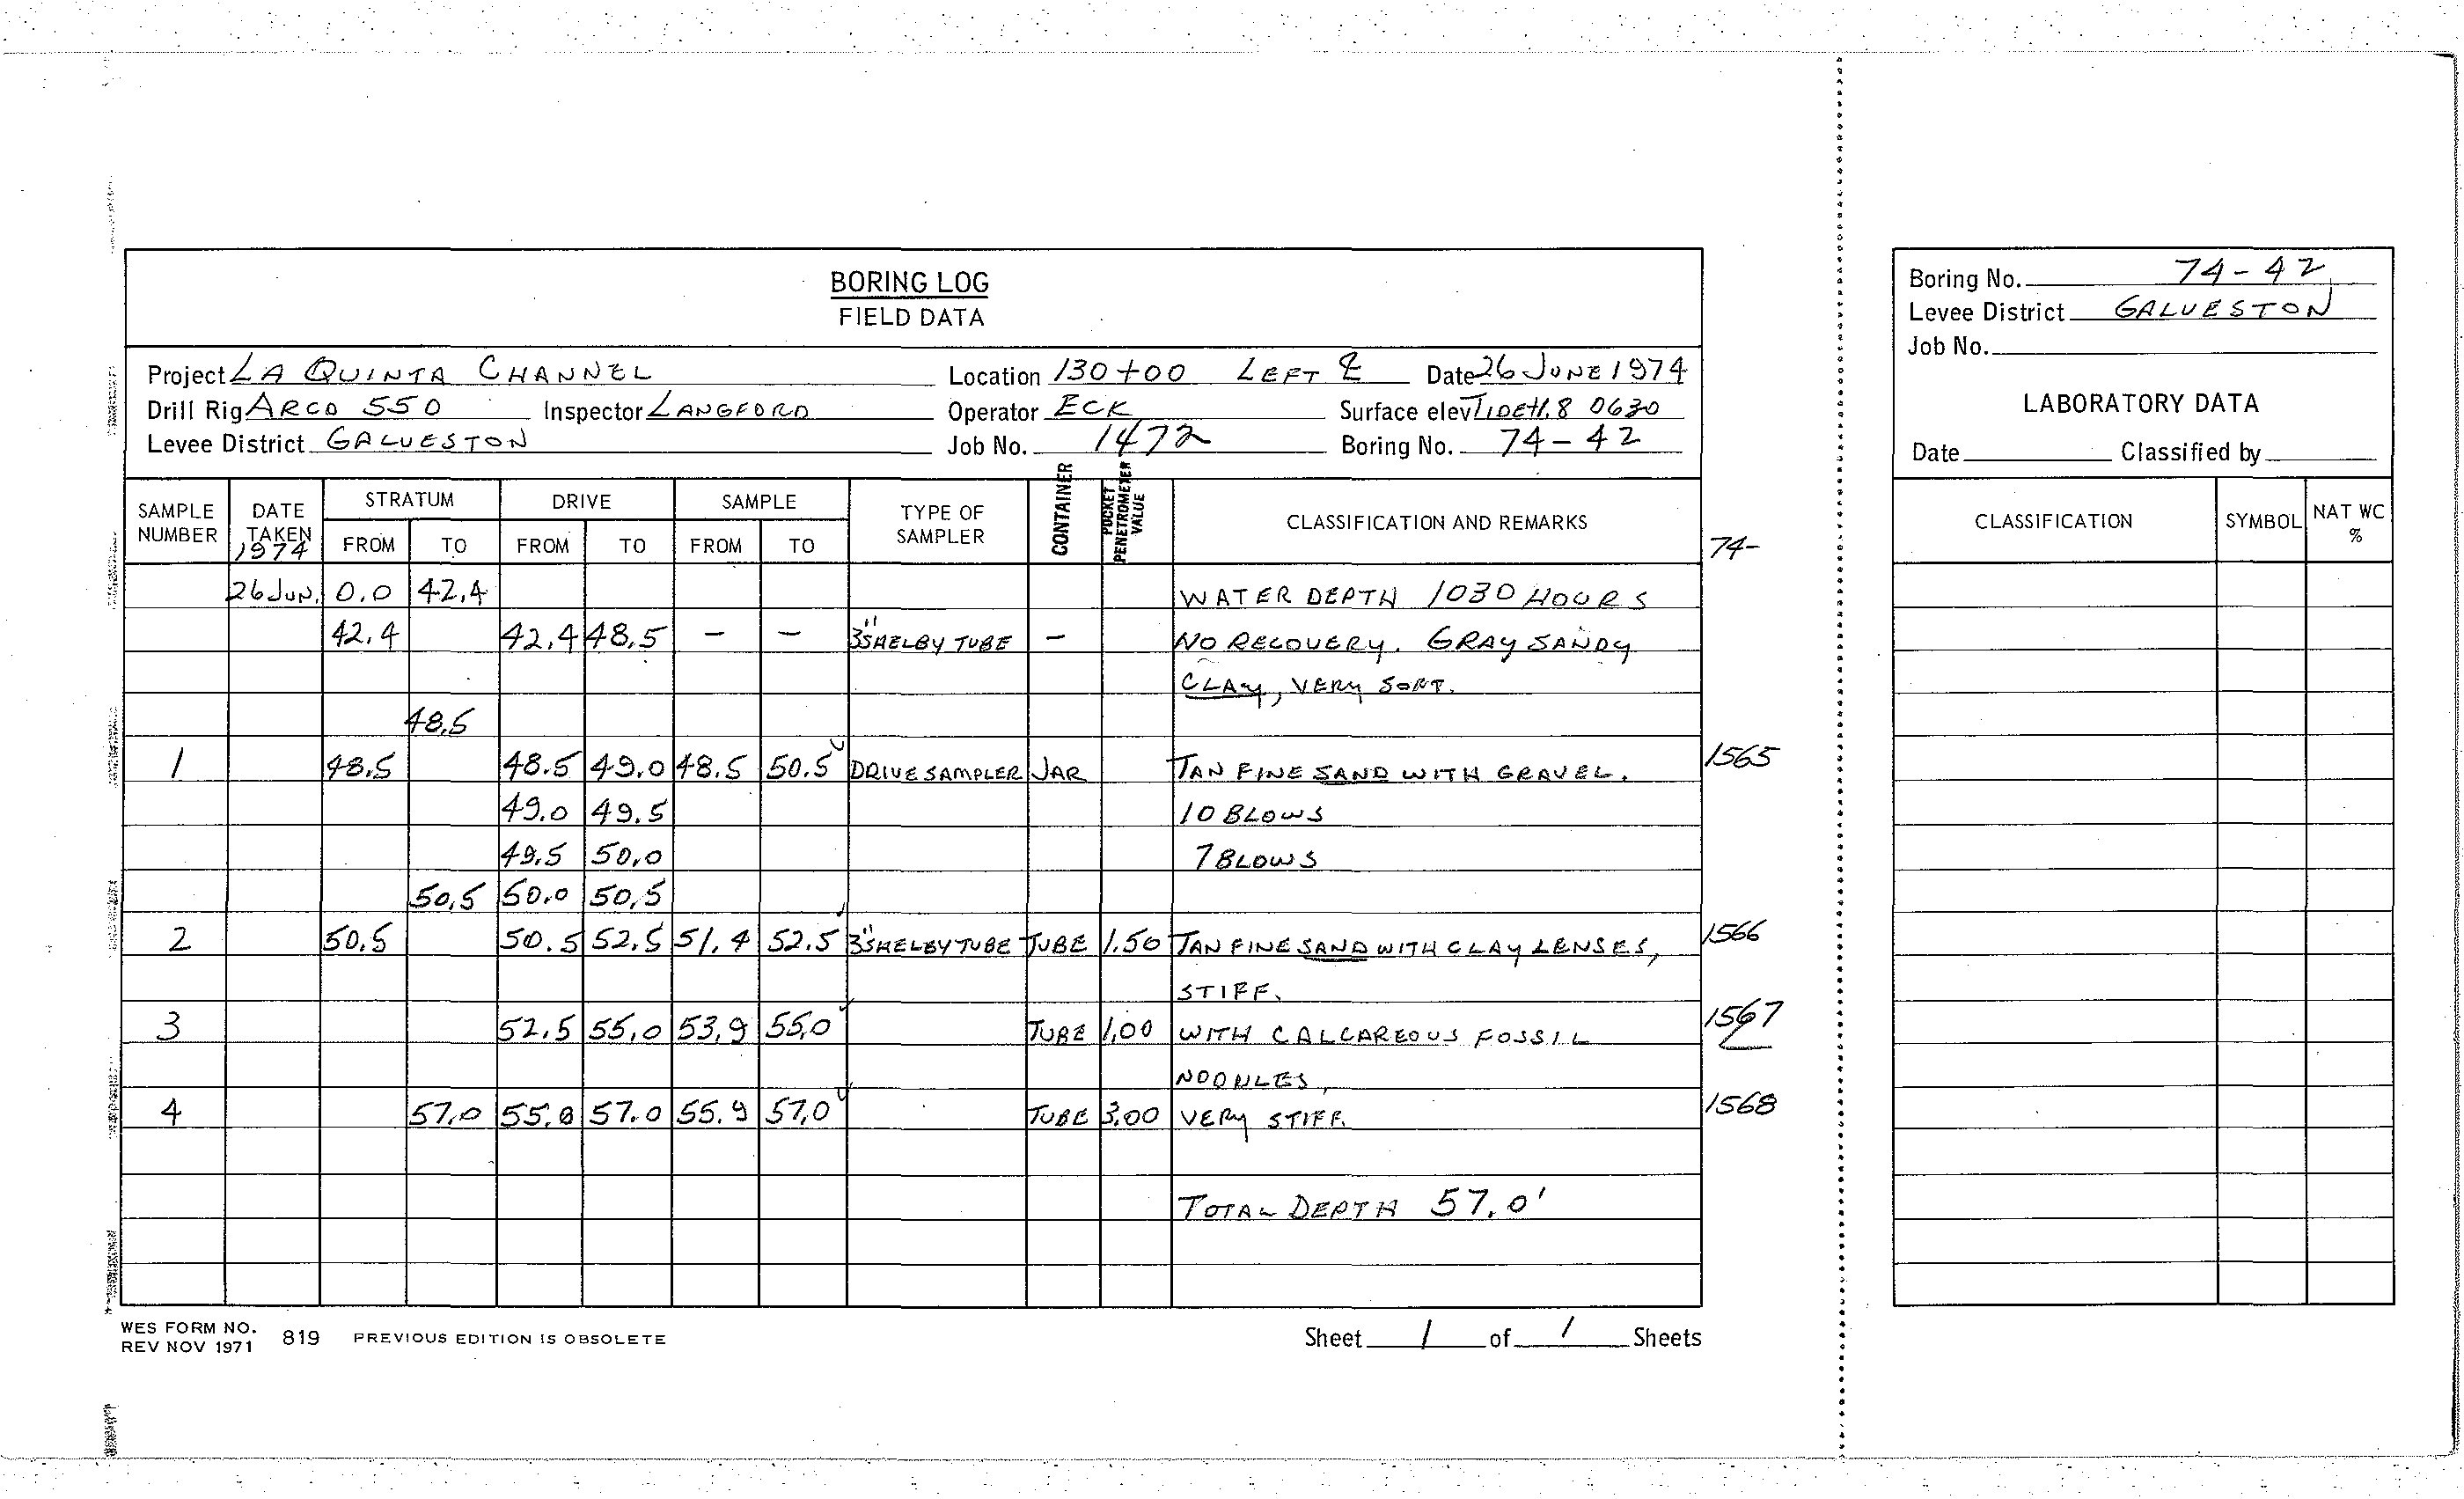 BORING LOG
FIELD DATA
Project LA QUINTA CHANNEL Location 130+00 LEFT ℄ Date 26 JUNE 1974
Drill Rig ARCO 550 Inspector LANGFORD Operator ECK Surface elev TIDE +1.8 0630
Levee District GALVESTON Job No. 1472 Boring No. 74-42
SAMPLE NUMBER DATE TAKEN 1974 STRATUM FROM TO DRIVE FROM TO SAMPLE FROM TO TYPE OF SAMPLER CONTAINER POCKET PENETROMETER VALUE CLASSIFICATION AND REMARKS 74-
26 JUN. 0.0 42.4 WATER DEPTH 1030 HOURS
42.4 42.4 48.5 - - 3" SHELBY TUBE - NO RECOVERY. GRAY SANDY
CLAY, VERY SOFT.
48.5
1 48.5 48.5 49.0 48.5 50.5 DRIVE SAMPLER JAR TAN FINE SAND WITH GRAVEL. 1565
49.0 49.5 10 BLOWS
49.5 50.0 7 BLOWS
50.5 50.0 50.5
2 50.5 50.5 52.5 51.4 52.5 3" SHELBY TUBE TUBE 1.50 TAN FINE SAND WITH CLAY LENSES, 1566
STIFF.
3 52.5 55.0 53.9 55.0 TUBE 1.00 WITH CALCAREOUS FOSSIL 1567
NODULES,
4 57.0 55.0 57.0 55.9 57.0 TUBE 3.00 VERY STIFF. 1568
TOTAL DEPTH 57.0'
WES FORM NO. 819 PREVIOUS EDITION IS OBSOLETE
REV NOV 1971
Sheet 1 of 1 Sheets
Boring No. 74-42
Levee District GALVESTON
Job No.
LABORATORY DATA
Date Classified by
CLASSIFICATION SYMBOL NAT WC %